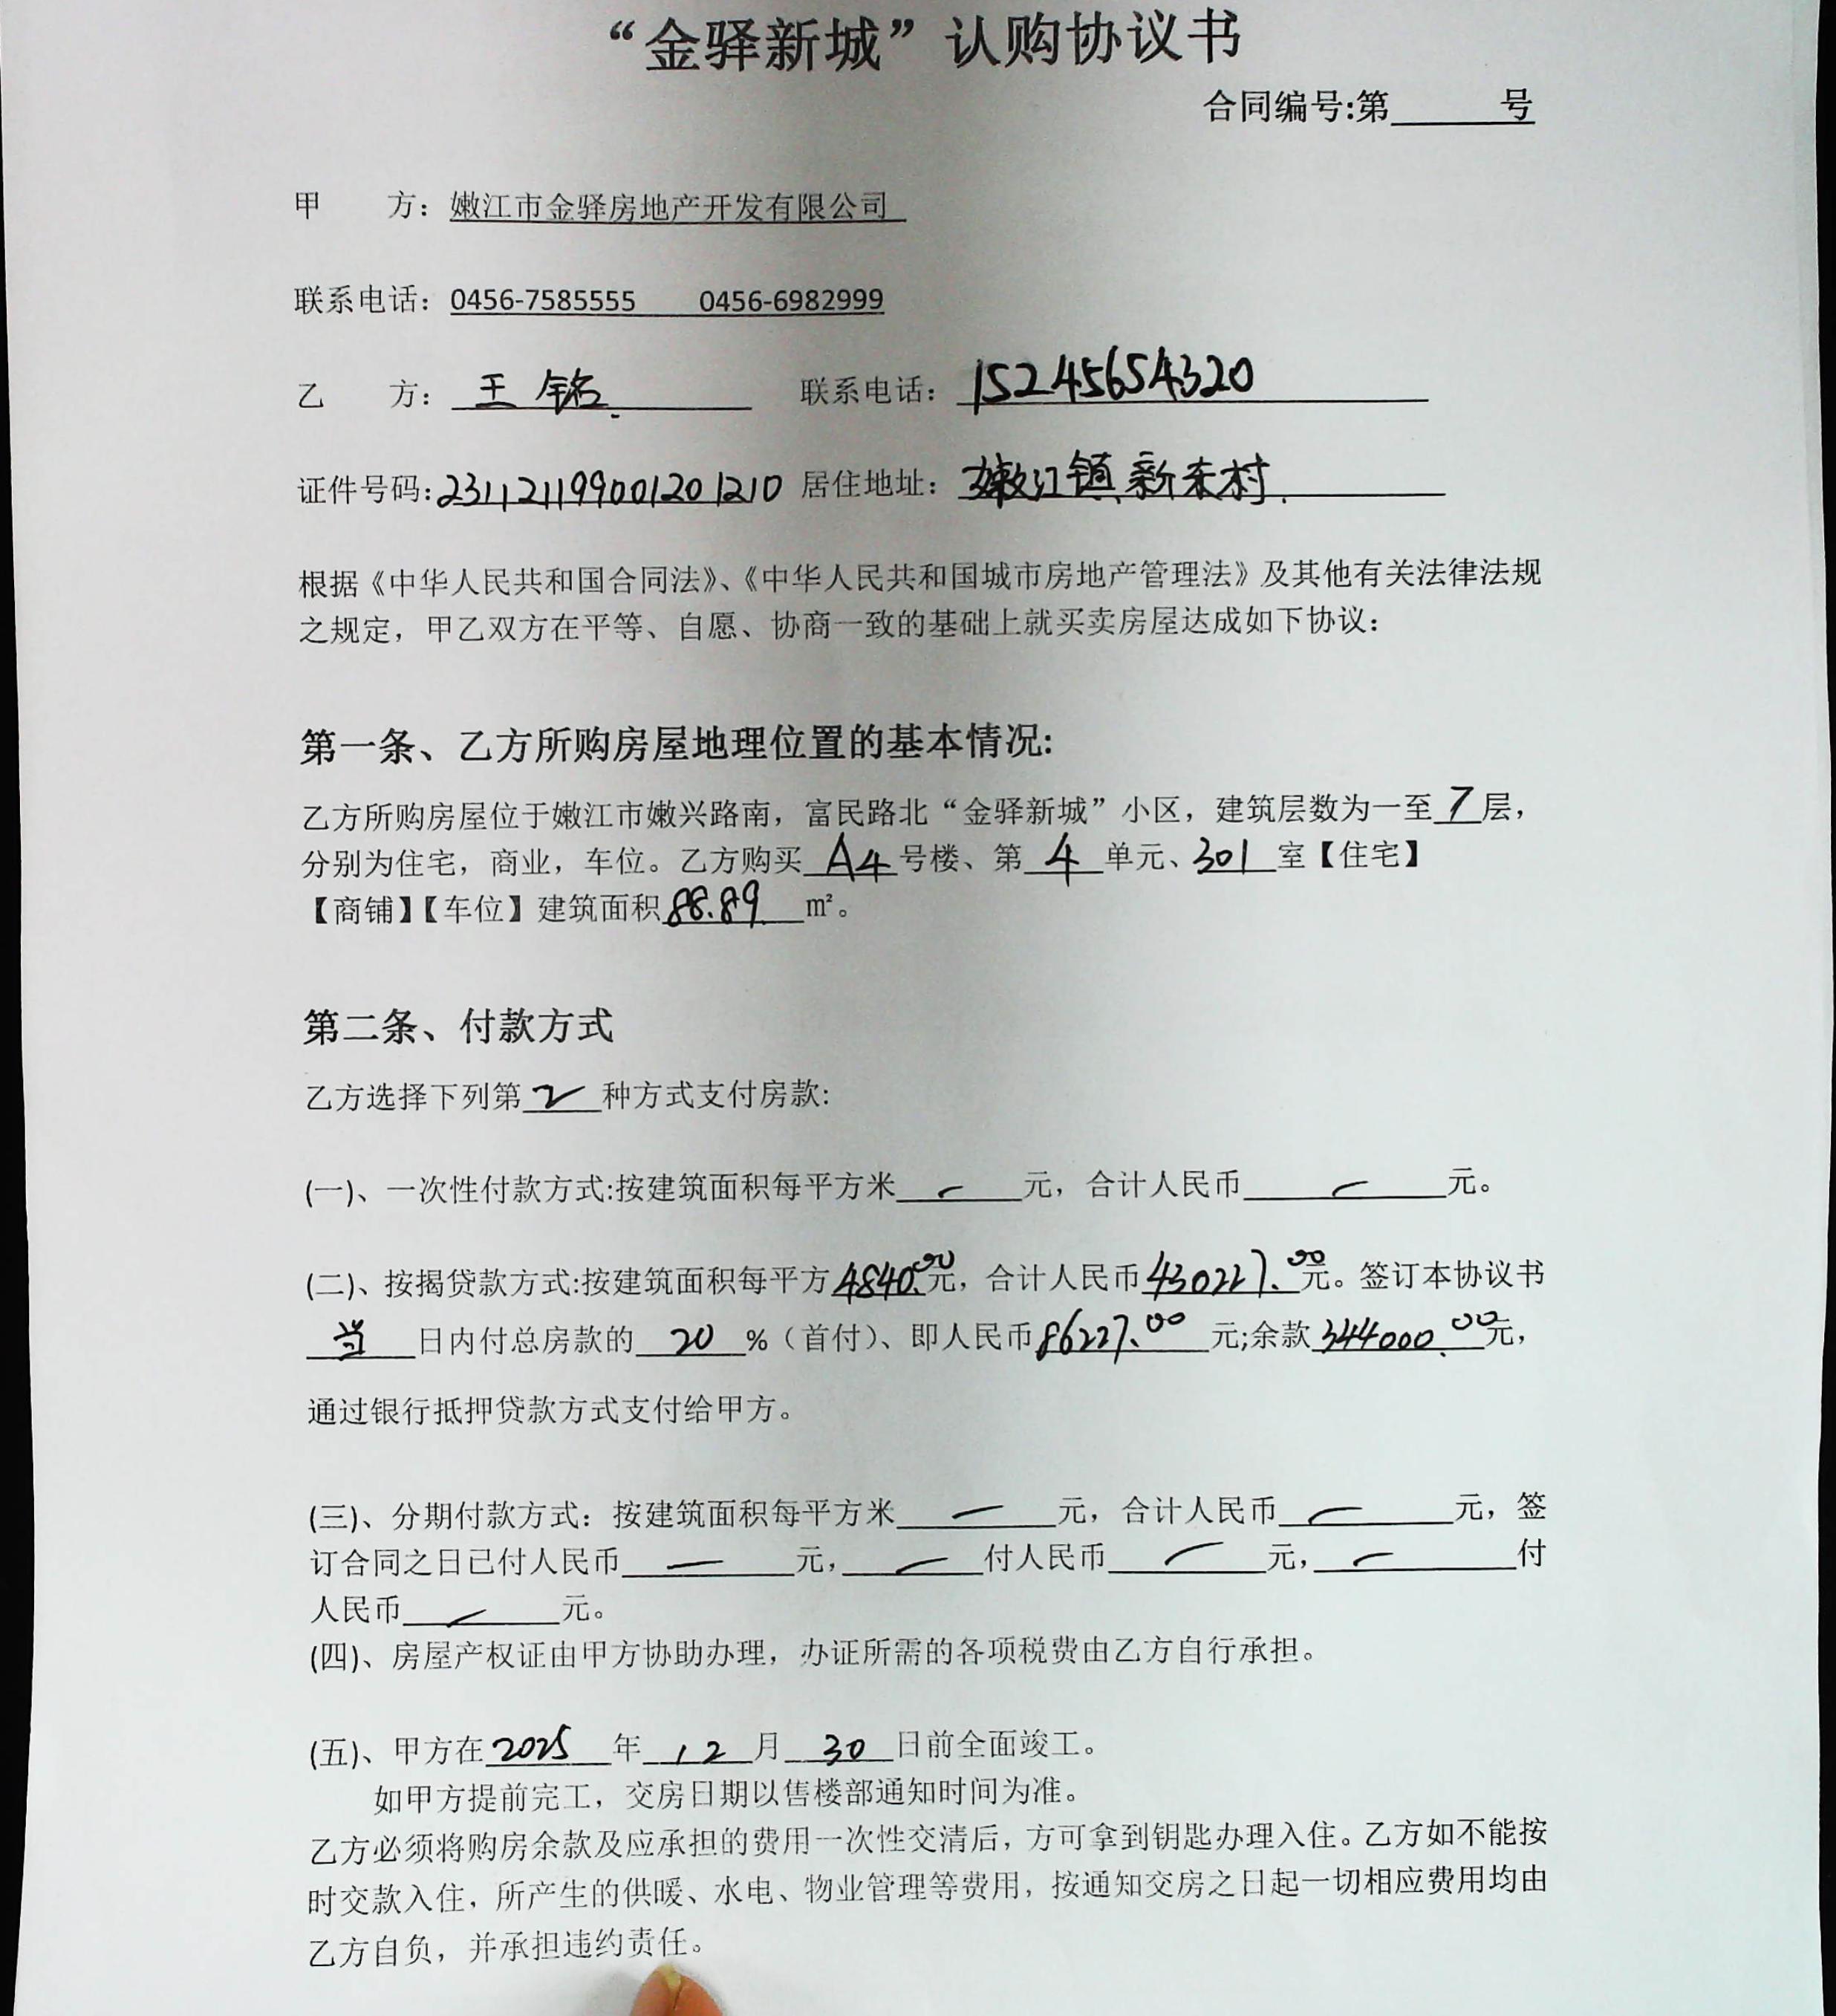 “金驿新城”认购协议书
合同编号:第______号
甲　　方：嫩江市金驿房地产开发有限公司
联系电话：0456-7585555　　0456-6982999
乙　　方：王铭　　联系电话：15245654320
证件号码:231121199001201210 居住地址：嫩江镇新东村.
根据《中华人民共和国合同法》、《中华人民共和国城市房地产管理法》及其他有关法律法规
之规定，甲乙双方在平等、自愿、协商一致的基础上就买卖房屋达成如下协议：
第一条、乙方所购房屋地理位置的基本情况:
乙方所购房屋位于嫩江市嫩兴路南，富民路北“金驿新城”小区，建筑层数为一至7层，
分别为住宅，商业，车位。乙方购买A4号楼、第4单元、301室【住宅】
【商铺】【车位】建筑面积88.89m²。
第二条、付款方式
乙方选择下列第2种方式支付房款:
(一)、一次性付款方式:按建筑面积每平方米—元，合计人民币—元。
(二)、按揭贷款方式:按建筑面积每平方4840.00元，合计人民币430227.00元。签订本协议书
当日内付总房款的20%（首付）、即人民币86227.00元;余款344000.00元，
通过银行抵押贷款方式支付给甲方。
(三)、分期付款方式：按建筑面积每平方米—元，合计人民币—元，签
订合同之日已付人民币—元，—付人民币—元，—付
人民币—元。
(四)、房屋产权证由甲方协助办理，办证所需的各项税费由乙方自行承担。
(五)、甲方在2025年12月30日前全面竣工。
如甲方提前完工，交房日期以售楼部通知时间为准。
乙方必须将购房余款及应承担的费用一次性交清后，方可拿到钥匙办理入住。乙方如不能按
时交款入住，所产生的供暖、水电、物业管理等费用，按通知交房之日起一切相应费用均由
乙方自负，并承担违约责任。